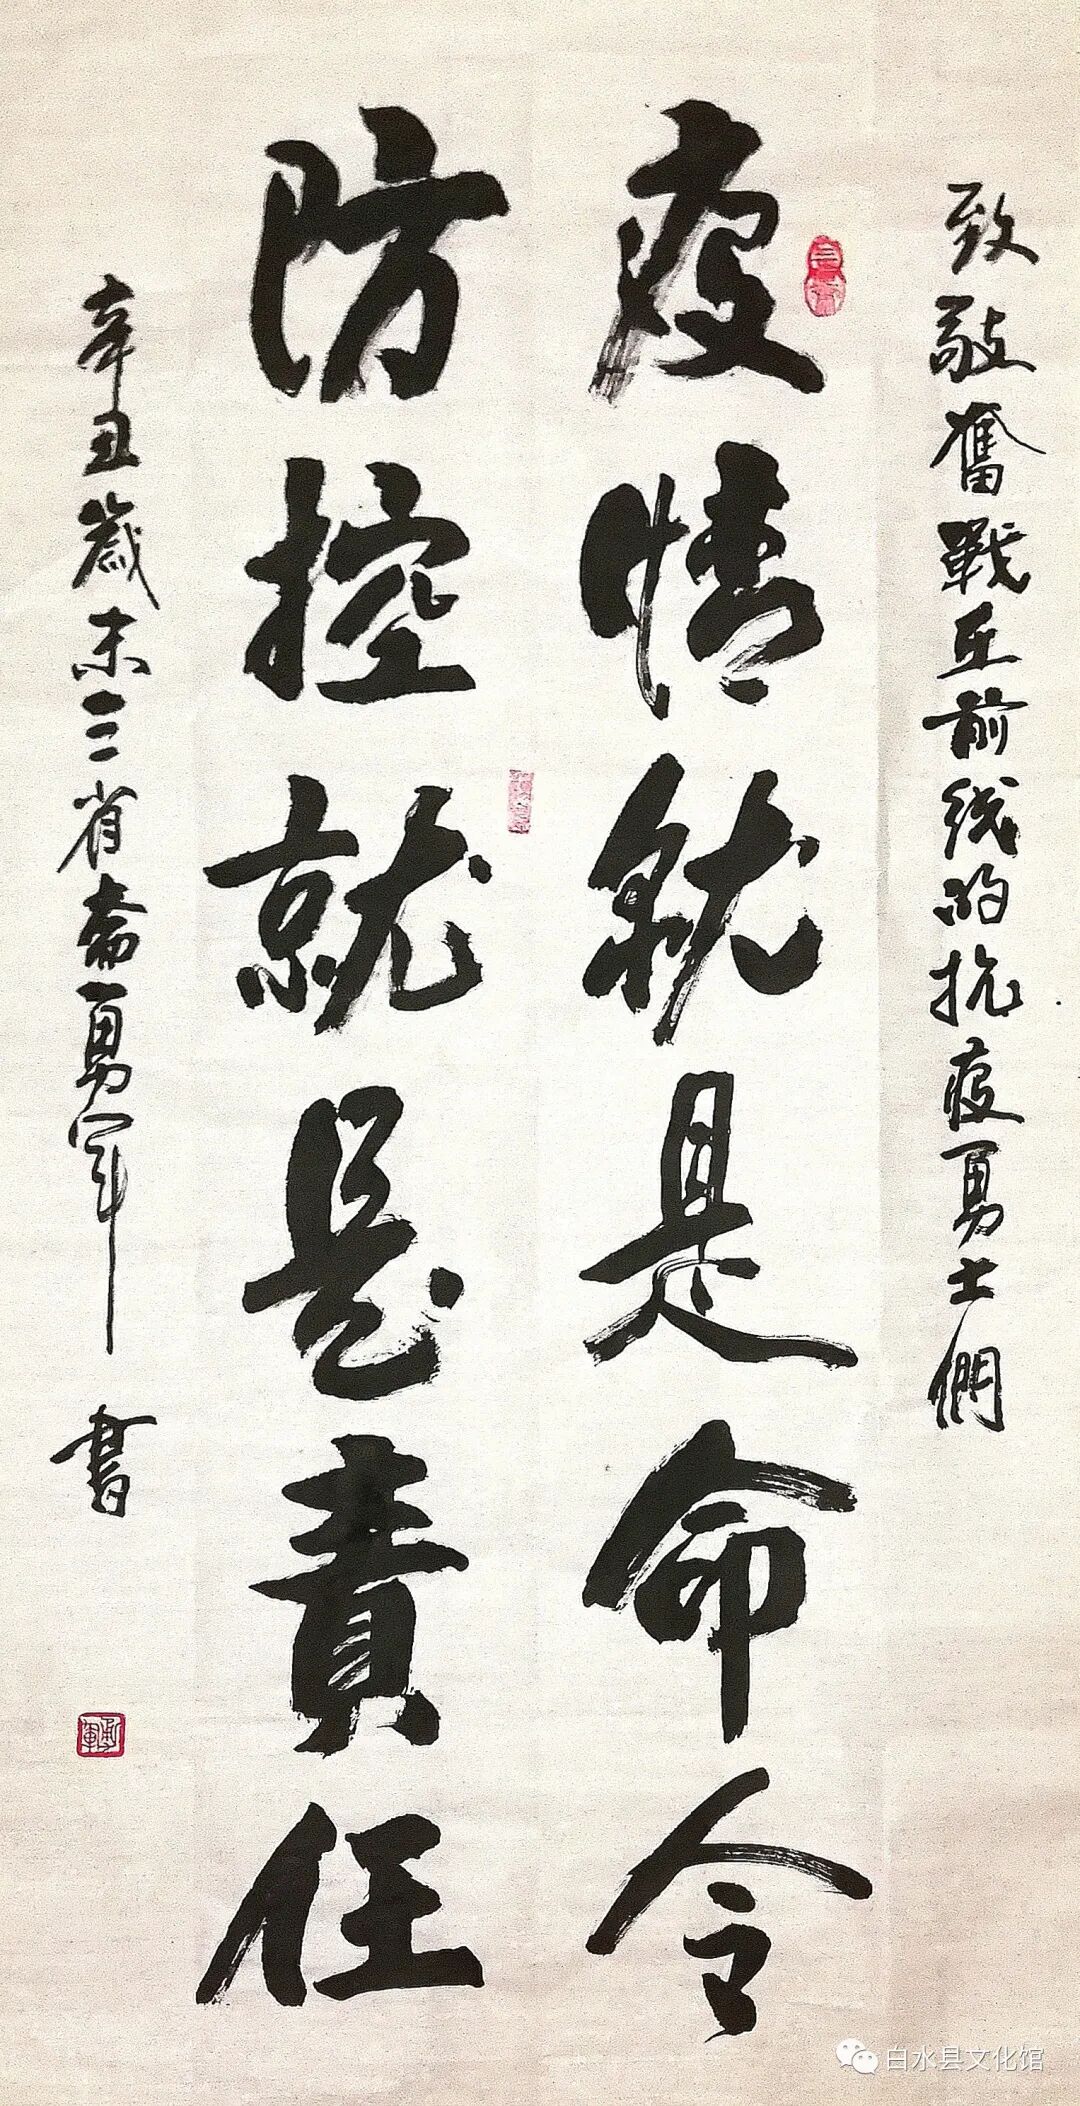 致敬奮戰在前线的抗疫勇士們
疫情就是命令
防控就是責任
辛丑歲末三省斋勇军書
白水县文化馆